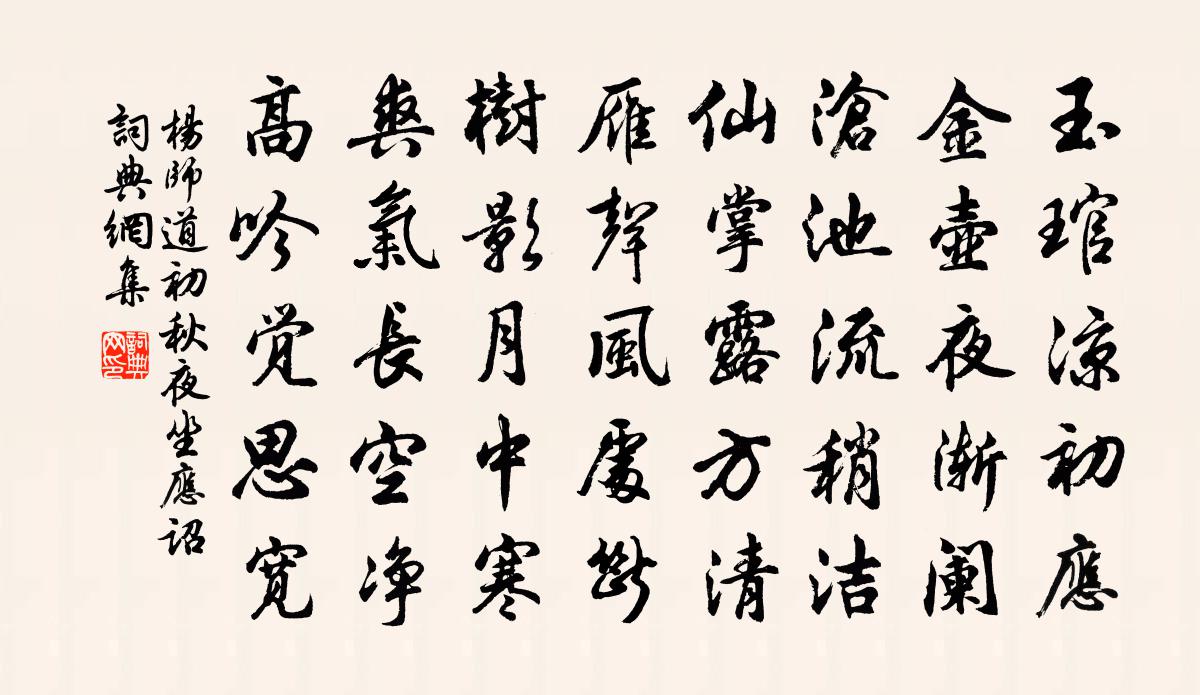 玉琯涼初應
金壺夜渐阑
滄池流稍洁
仙掌露方清
雁聲風處斷
樹影月中寒
爽氣長空净
高吟觉思寛
楊師道初秋夜坐應詔
詞典網集
詞典网印